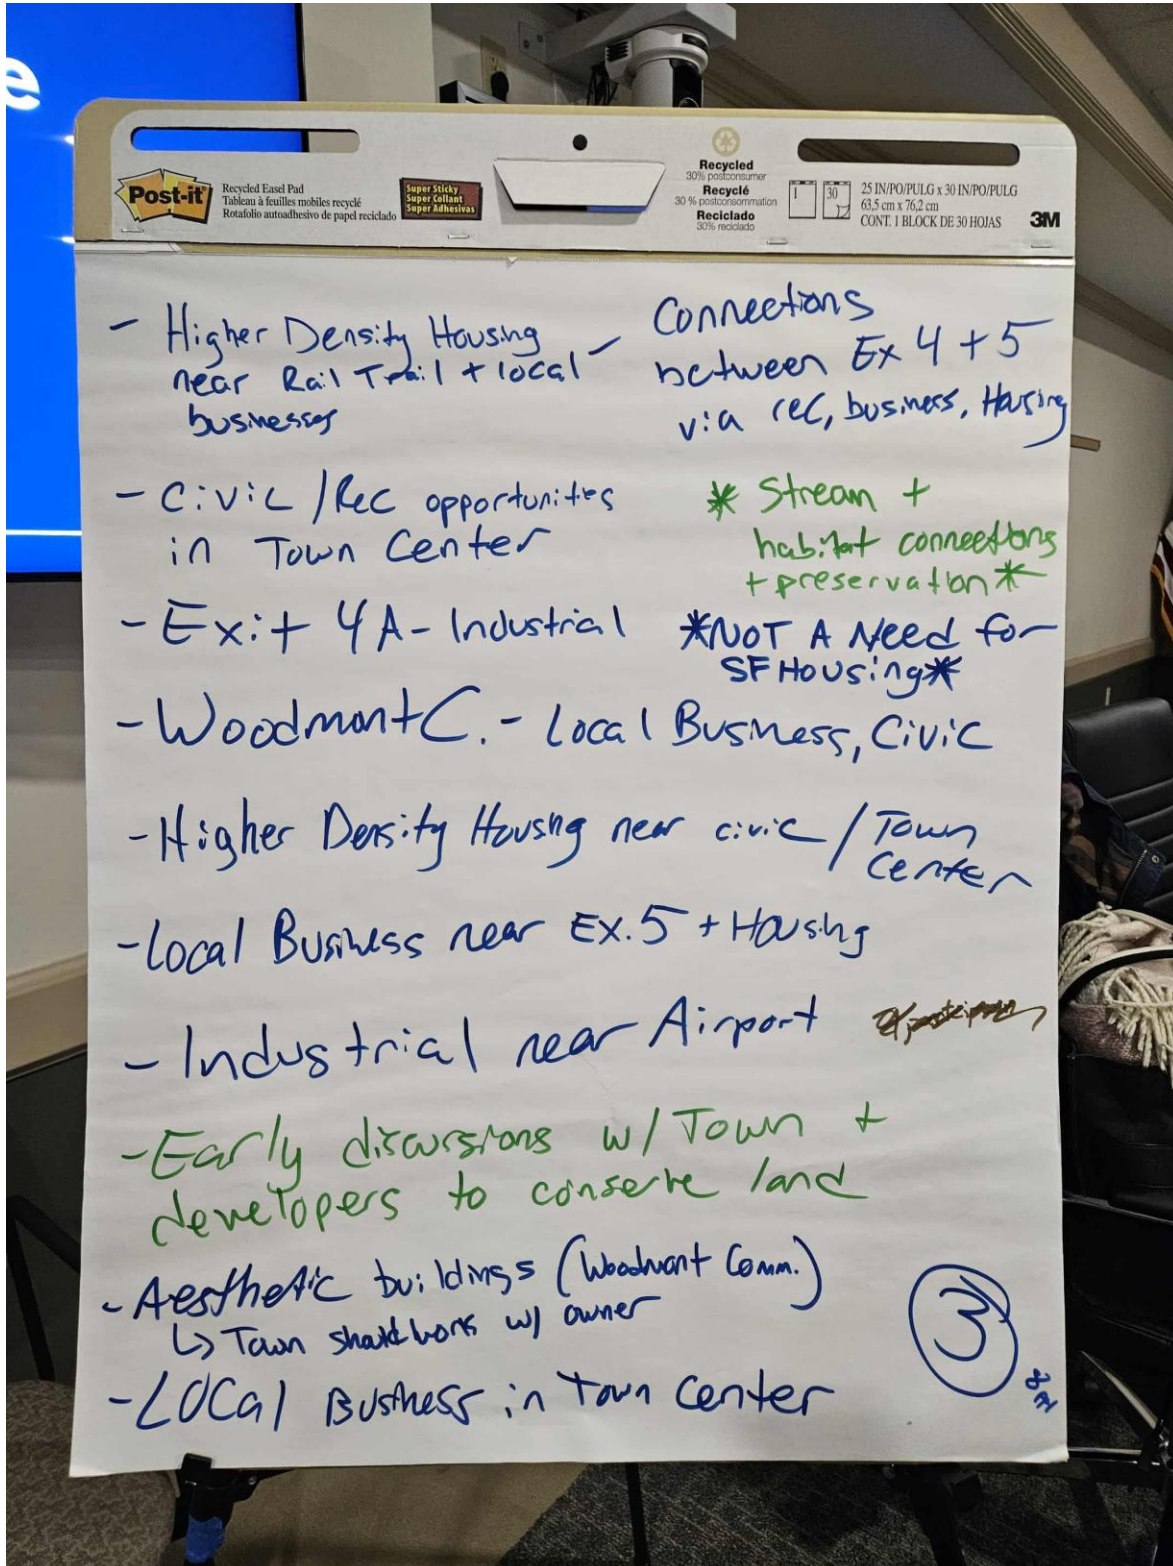 e
Post-it
Recycled Easel Pad
Tableau à feuilles mobiles recyclé
Rotafolio autoadhesivo de papel reciclado
Super Sticky
Super Collant
Super Adhesivas
Recycled
30% postconsumer
Recyclé
30 % postconsommation
Reciclado
30% reciclado
1
30
25 IN/PO/PULG x 30 IN/PO/PULG
63,5 cm x 76,2 cm
CONT. 1 BLOCK DE 30 HOJAS
3M
- Higher Density Housing
near Rail Trail + local
businesses
- Connections
between Ex 4 + 5
via rec, business, Housing
- Civic / Rec opportunities
in Town Center
* Stream +
habitat connections
+ preservation *
- Exit 4A - Industrial
*NOT A Need for
SF Housing*
- Woodmont C. - Local Business, Civic
- Higher Density Housing near civic / Town
Center
- Local Business near Ex. 5 + Housing
- Industrial near Airport
- Early discussions w/ Town +
developers to conserve land
- Aesthetic buildings (Woodmont Comm.)
↳ Town should work w/ owner
- Local Business in Town Center
3